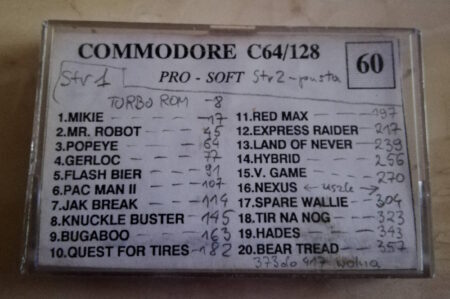 COMMODORE C64/128 60
str 1 PRO - SOFT Str 2 - pusta
TURBO ROM - 8
1.MIKIE 17
2.MR. ROBOT 45
3.POPEYE 64
4.GERLOC 77
5.FLASH BIER 91
6.PAC MAN II 107
7.JAK BREAK 114
8.KNUCKLE BUSTER 145
9.BUGABOO 163
10.QUEST FOR TIRES 182
11.RED MAX 197
12.EXPRESS RAIDER 217
13.LAND OF NEVER 239
14.HYBRID 256
15.V. GAME 270
16.NEXUS
17.SPARE WALLIE 304
18.TIR NA NOG 323
19.HADES 343
20.BEAR TREAD 357
373 do 417 wolna